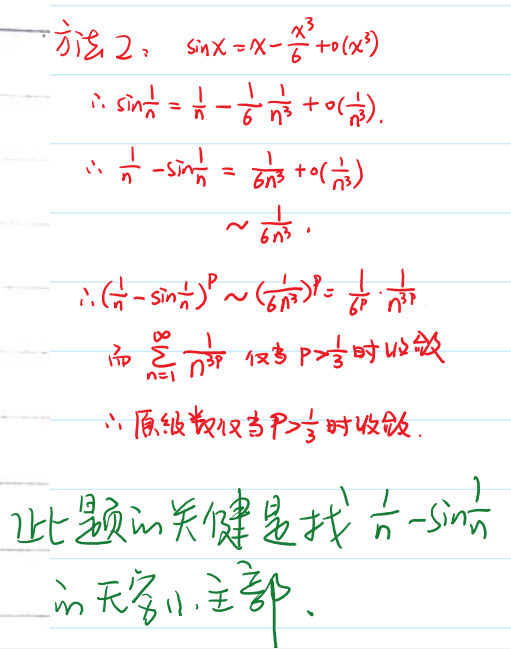 方法2: sinx = x - x³/6 + o(x³)
∴ sin 1/n = 1/n - 1/6 · 1/n³ + o(1/n³).
∴ 1/n - sin 1/n = 1/(6n³) + o(1/n³)
~ 1/(6n³).
∴ (1/n - sin 1/n)^p ~ (1/(6n³))^p = 1/6^p · 1/n^(3p)
而 ∑_{n=1}^{∞} 1/n^(3p) 仅当 P>1/3 时收敛
∴ 原级数仅当 P>1/3 时收敛.
此题的关健是找 1/n - sin 1/n
的无穷小主部.